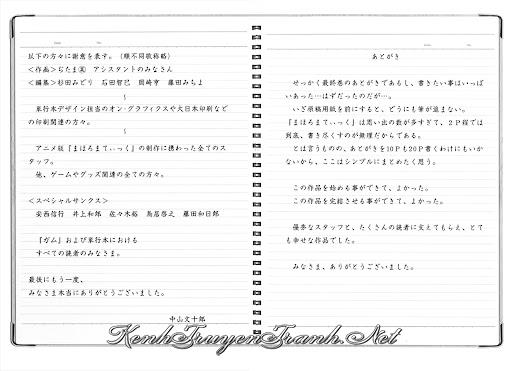 あとがき
せっかく最終巻のあとがきであるし、書きたい事はいっぱ
いあった…はずだったのだが…。
いざ原稿用紙を前にすると、どうにも筆が進まない。
『まほろまてぃっく』は思い出の数が多すぎて、２Ｐ程では
到底、書き尽くすのが無理だからである。
とは言うものの、あとがきを10Ｐも20Ｐ書くわけにもいか
ないから、ここはシンプルにまとめたく思う。
この作品を始める事ができて、よかった。
この作品を完結させる事ができて、よかった。
優秀なスタッフと、たくさんの読者に支えてもらえ、とて
も幸せな作品でした。
みなさま、ありがとうございました。
以下の方々に謝意を表す。（順不同敬称略）
＜作画＞ぢたま アシスタントのみなさん
＜編集＞杉田みどり 石田智巳 岡崎亨 藤田みちよ
～
単行本デザイン担当のオン・グラフィクスや大日本印刷など
の印刷関連の方々。
～
アニメ版『まほろまてぃっく』の制作に携わった全てのス
タッフ。
他、ゲームやグッズ関連の全ての方々。
＜スペシャルサンクス＞
安西信行 井上和郎 佐々木裕 島居啓之 藤田和日郎
『ガム』および単行本における
すべての読者のみなさま。
最後にもう一度、
みなさま本当にありがとうございました。
中山文十郎
KenhTruyenTranh.Net